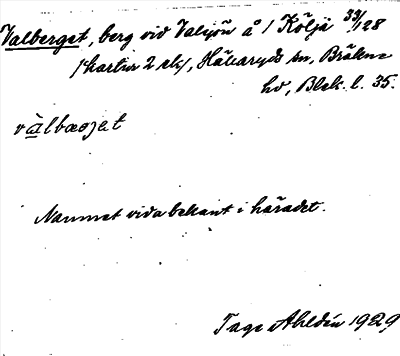 Valberget, berg vid Valsjön å 1 Kölja 33/128
(kartor 2 ek), Hällaryds sn, Bräkne
hd, Blek. l. 35.
vàlbærjet
Namnet vida bekant i häradet.
Tage Ahldén 1929